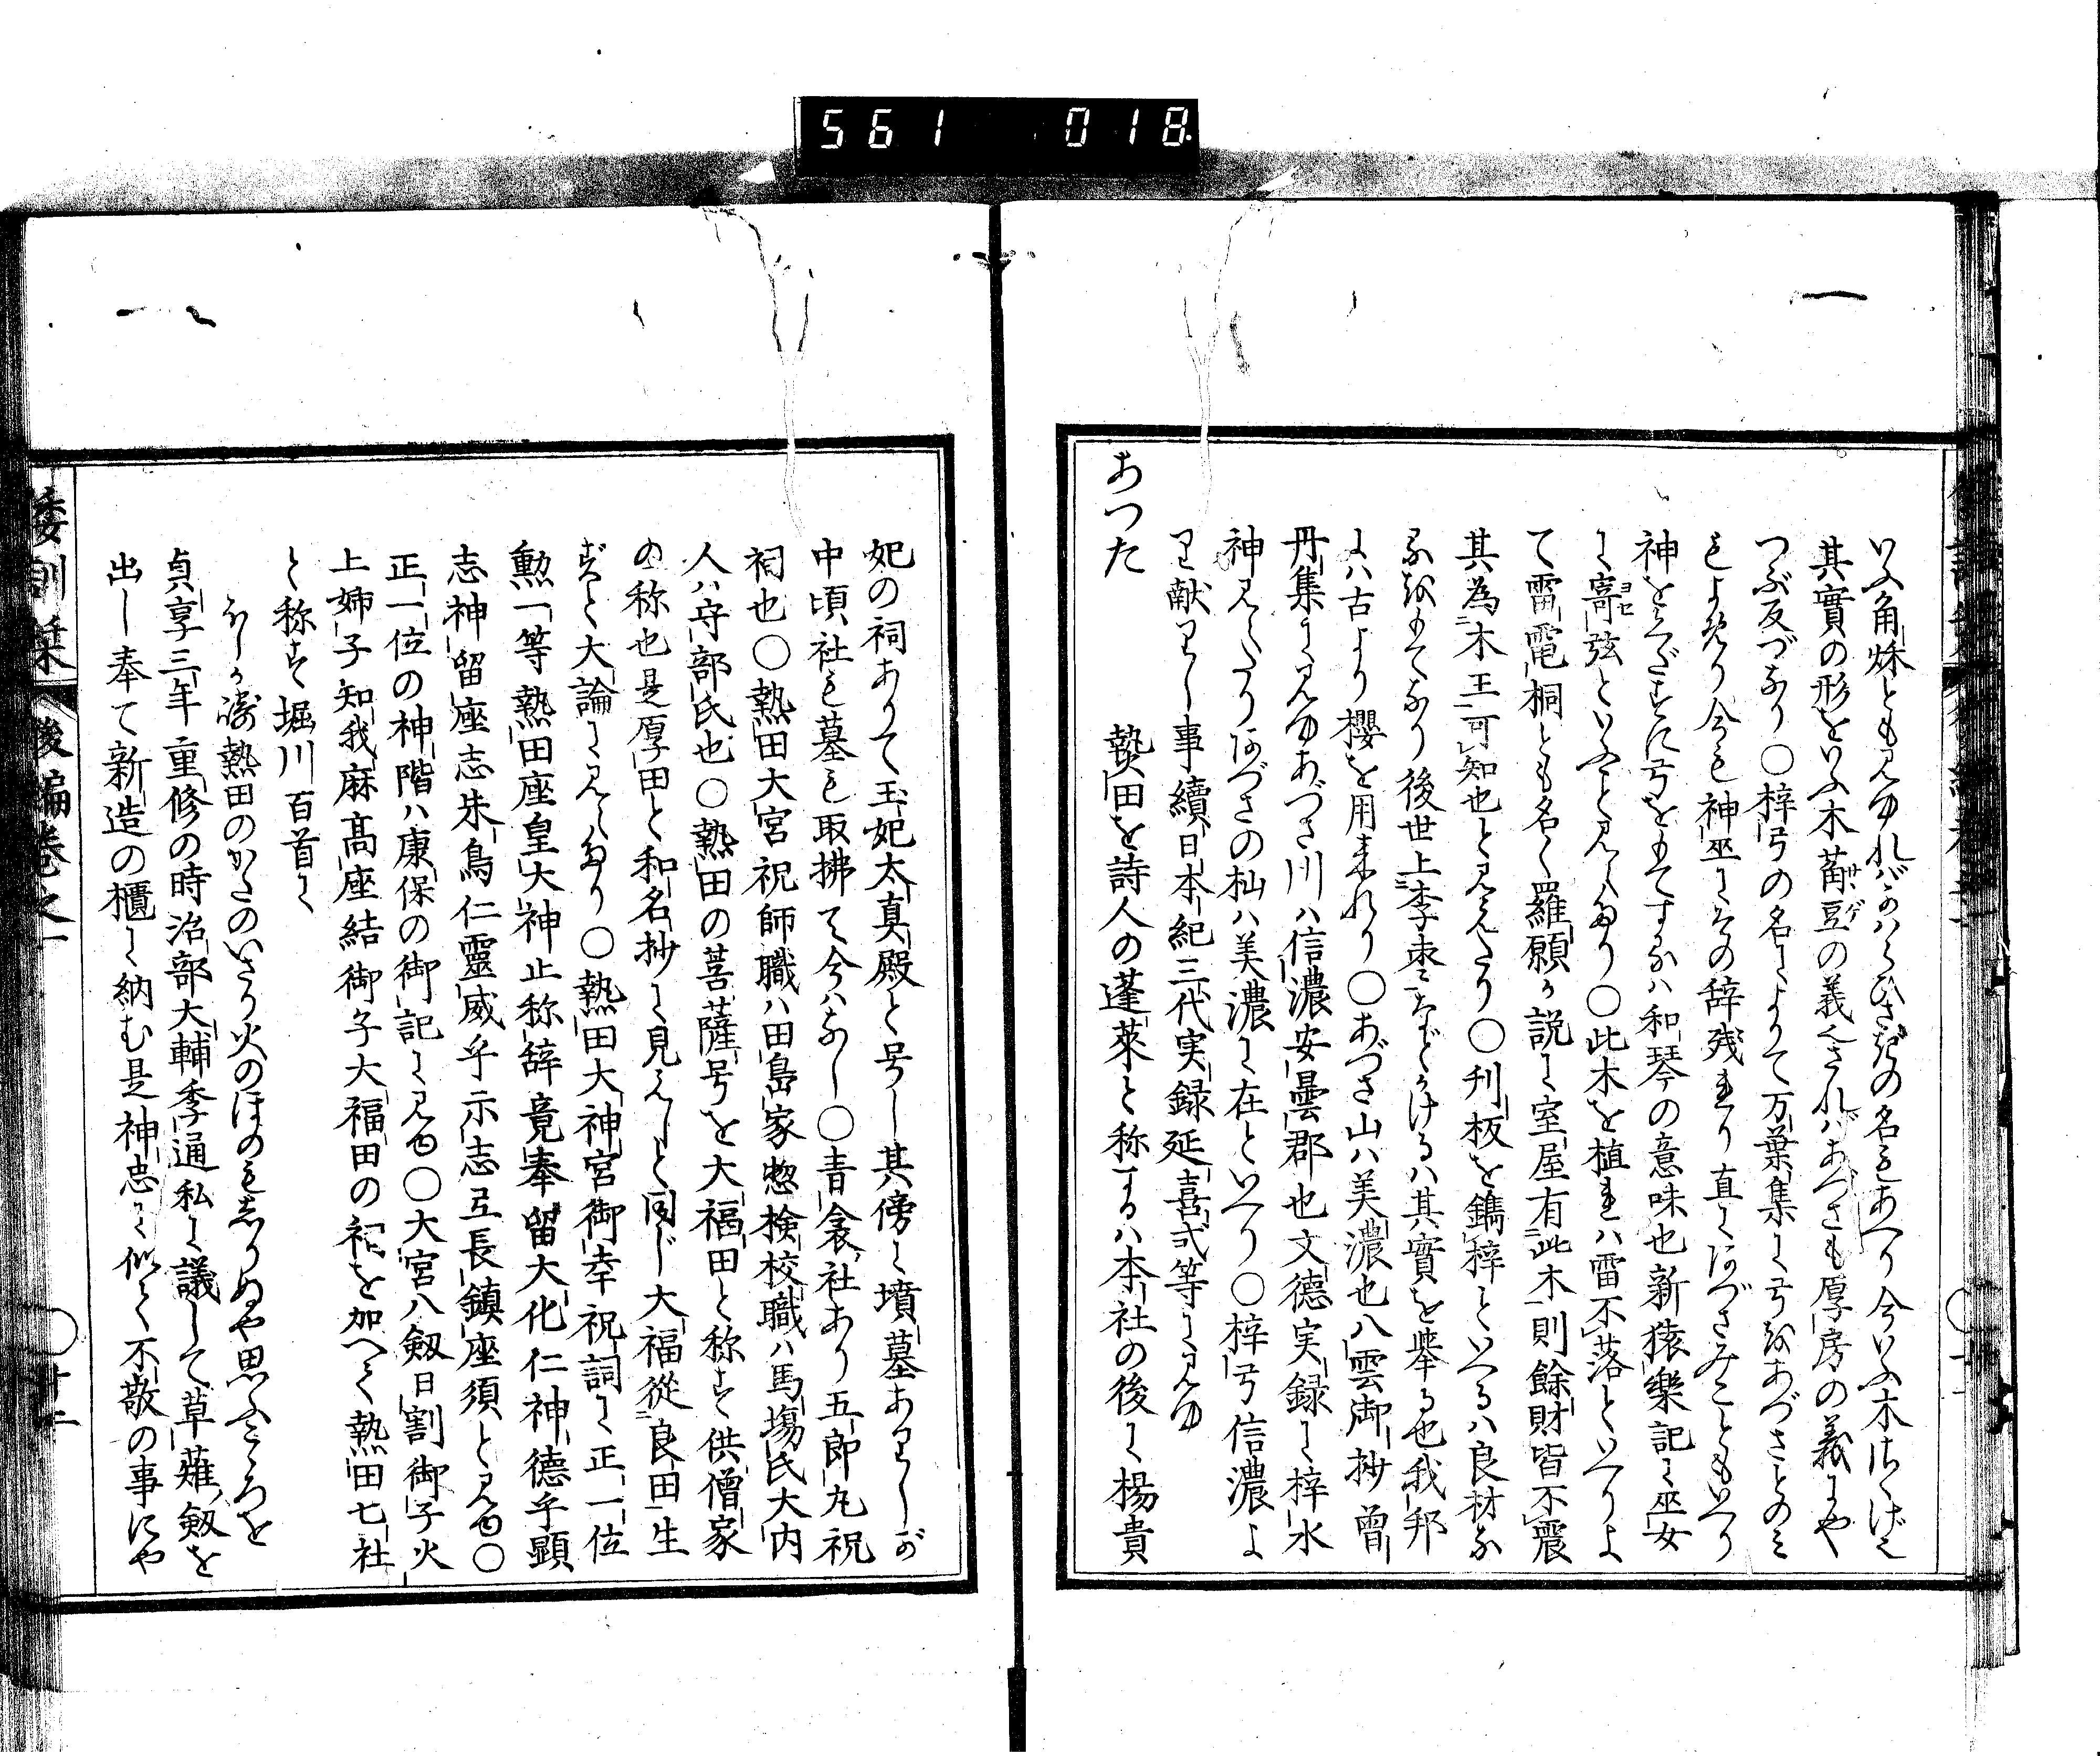 561 018
いふ角楸とも見ゆればかはらひさぎの名もあへり今いふ木さゝげ
其實の形をいふ木豇豆の義也さればあづさも厚房の義にや
つぶ反づなり〇梓弓の名によりて万葉集に弓をあづさとのミ
もよめり今も神巫にその辞残れり直にあづさみこともいへり
神をくだすに弓をもてするハ和琴の意味也新猿樂記に巫女
に寄弦といふと見えたり〇此木を植れハ雷不落といへりよ
て雷電桐とも名く羅願か説に室屋有此木則餘財皆不震
其為木王可知也と見えたり〇刋板を鐫梓といへるハ良材な
るをもてなり後世上李棗をなどかけるハ其實を擧る也我邦
にハ古より櫻を用来れり〇あづさ山ハ美濃也八雲御抄曽
丹集に見ゆあづさ川ハ信濃安曇郡也文德実録に梓水
神見えたりあづさの杣ハ美濃に在といへり〇梓弓信濃よ
り献りし事續日本紀三代実録延喜式等に見ゆ
あつた 熱田を詩人の蓬莱と称するハ本社の後に楊貴
妃の祠ありて玉妃太真殿と号し其傍に墳墓ありしが
中頃社も墓も取拂て今ハなし〇青衾社あり五郎丸祝
祠也〇熱田大宮祝師職ハ田島家惣検校職ハ馬塲氏大内
人ハ守部氏也〇熱田の菩薩号を大福田と称す供僧家
の称也是厚田と和名抄に見えしと同じ大福從良田生
ずと大論に見えたり〇熱田大神宮御幸祝詞に正一位
勲一等熱田座皇大神止称辞竟奉留大化仁神德乎顕
志神留座志朱鳥仁靈威乎示志弖長鎮座須と見ゆ〇
正一位の神階ハ康保の御記に見ゆ〇大宮八劔日割御子火
上姉子知我麻髙座結御子大福田の祠を加へて熱田七社
と称す堀川百首に
なしか濤熱田のかたのいさり火のほのも志りぬや思ふこゝろを
貞享三年重修の時治部大輔季通私に議して草薙劔を
出し奉て新造の櫃に納む是神忠に似て不敬の事にや
倭訓栞 後編巻之一 廿二